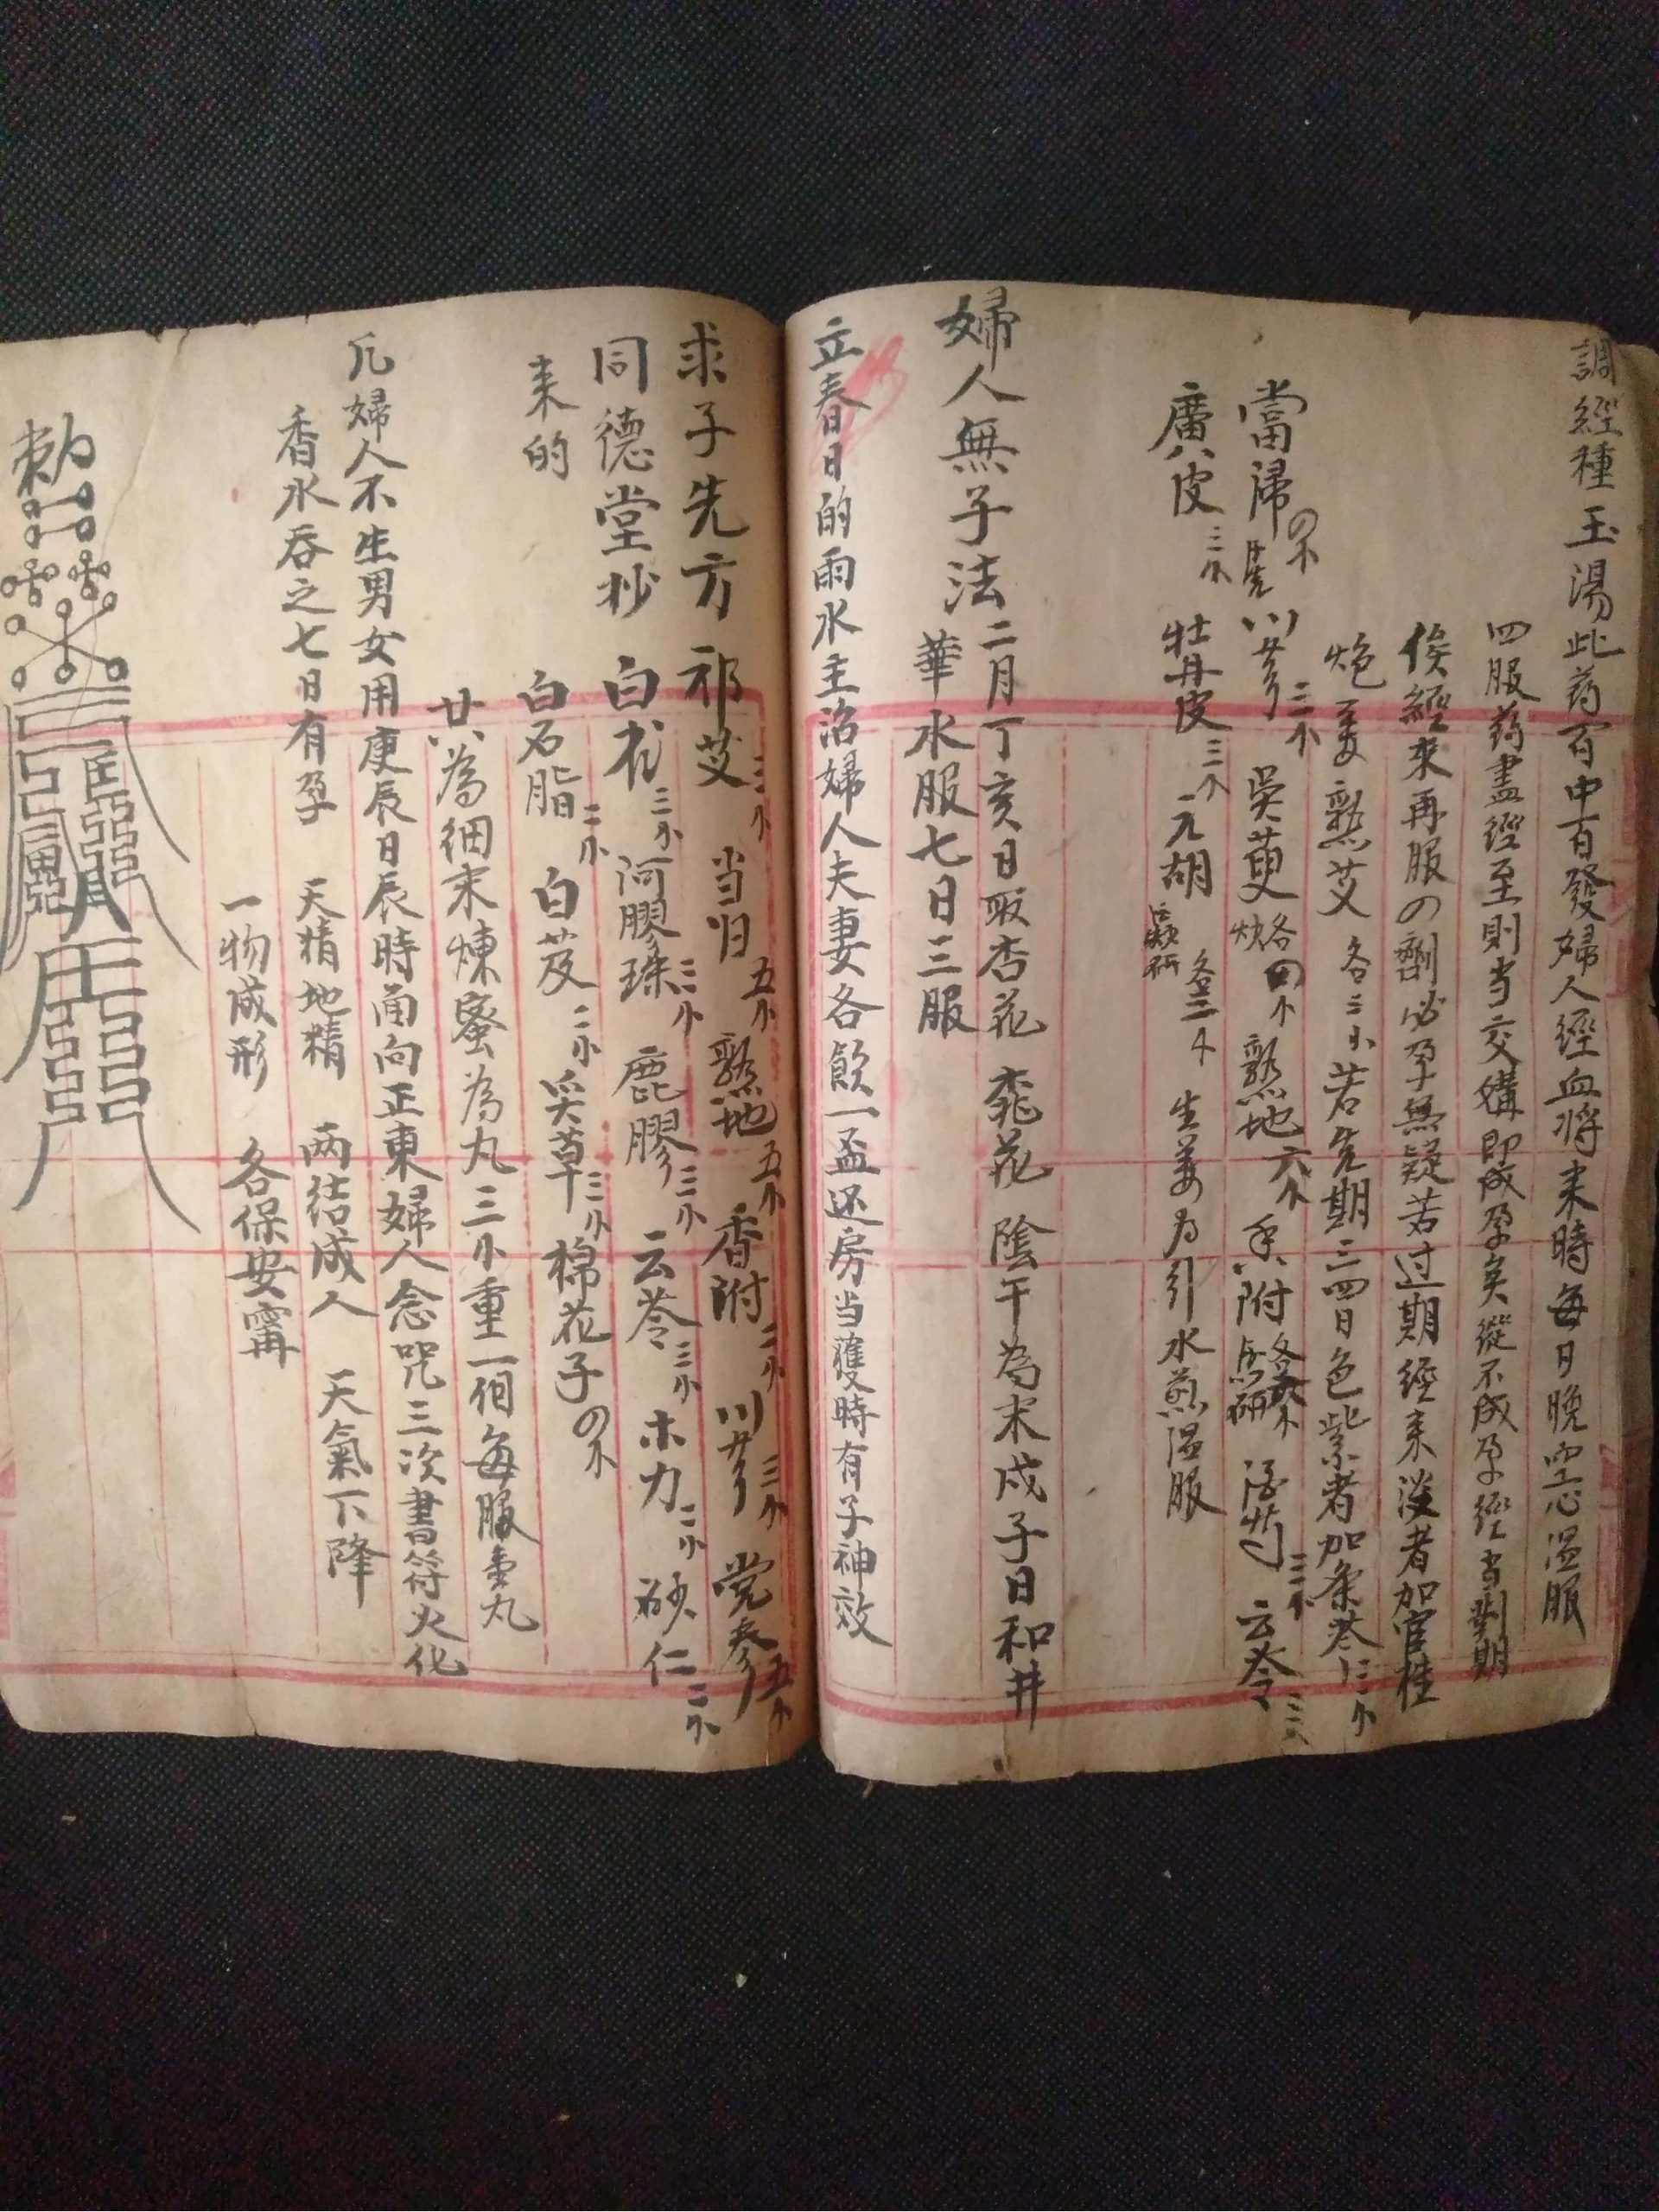 調經種玉湯此药百中百發婦人經血將来時每日晚空心温服
四服药盡經至則当交媾即成孕矣縱不成孕經当對期
俟經來再服四劑必孕無疑若过期經来淡者加官桂
炮姜熟艾各三小若先期三四日色紫者加条芩三小
當歸 川芎三小 吳萸 炒各四小 熟地六小 香附 云苓三
廣皮三小 牡丹皮三小 元胡 各三小 生姜为引水煎温服
婦人無子法二月丁亥日取杏花 桃花 陰干為末戊子日和井
華水服七日三服
立春日的雨水主治婦人夫妻各飲一盃还房当獲時有子神效
求子先方 祁艾三小 当归五小 熟地五小 香附三小 川芎三小 党參五小
同德堂抄 白朮三小 阿膠珠三小 鹿膠三小 云苓三小 木力二小 砂仁二小
来的 白石脂二小 白芨二小 草三小 棉花子
共為細末煉蜜為丸三小重一個每服壹丸
凡婦人不生男女用庚辰日辰時面向正東婦人念咒三次書符火化
香水吞之七日有孕 天精地精 两結成人 天氣下降
一物成形 各保安寧
勅